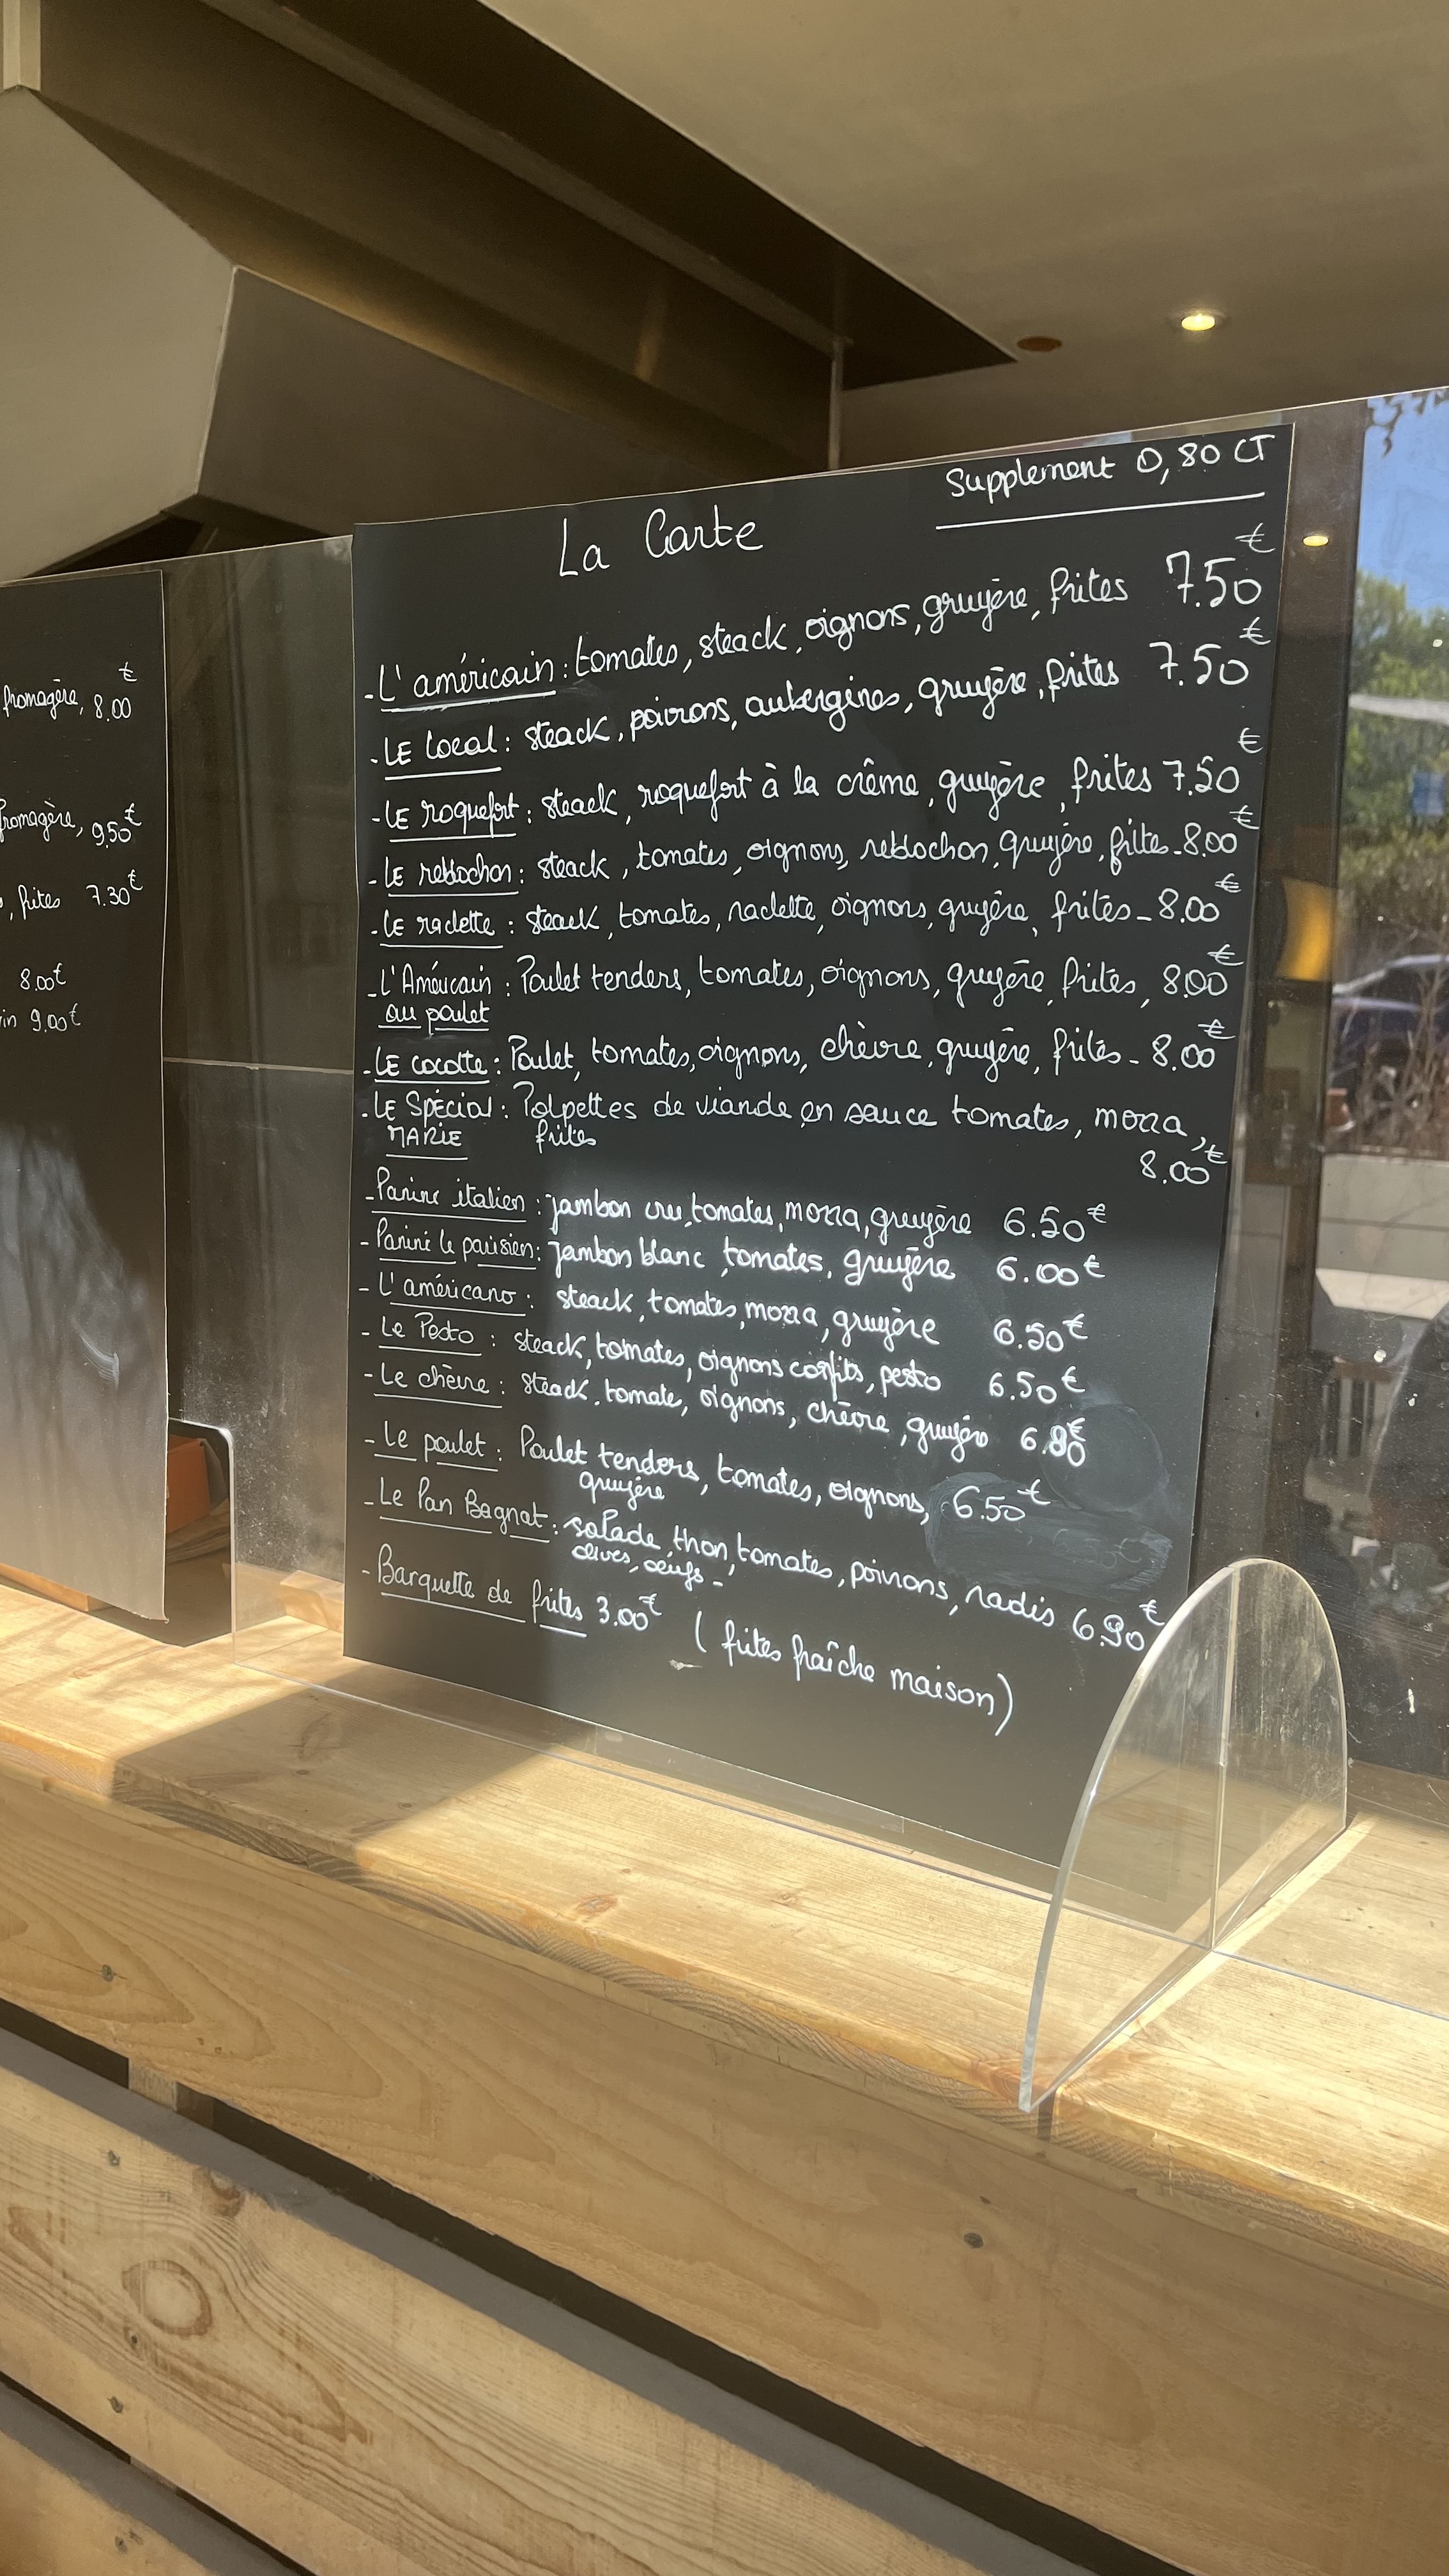 fromagère, 8.00€
fromagère, 9,50€
, frites 7.30€
8.00€
in 9.00€
Supplement 0,80 CT
La Carte
- L'américain : tomates, steack, oignons, gruyère, frites 7.50€
- LE local : steack, poivrons, aubergines, gruyère, frites 7.50€
- LE roquefort : steack, roquefort à la crême, gruyère, frites 7.50€
- LE reblochon : steack, tomates, oignons, reblochon, gruyère, frites - 8.00€
- Le raclette : steack, tomates, raclette, oignons, gruyère, frites - 8.00€
- L'Américain : Poulet tenders, tomates, oignons, gruyère, frites, 8.00€
au poulet
- LE cocotte : Poulet, tomates, oignons, chèvre, gruyère, frites - 8.00€
- LE Spécial : Polpettes de viande en sauce tomates, mozza,
MARIE frites
8.00€
- Panini italien : jambon cru, tomates, mozza, gruyère 6.50€
- Panini le parisien : jambon blanc, tomates, gruyère 6.00€
- L'américano : steack, tomates, mozza, gruyère 6.50€
- Le Pesto : steack, tomates, oignons confits, pesto 6.50€
- Le chèvre : steack, tomate, oignons, chèvre, gruyère
- Le poulet : Poulet tenders, tomates, oignons, 6.50€
gruyère
- Le Pan Bagnat : salade, thon, tomates, poivrons, radis 6.90€
olives, oeufs -
- Barquette de frites 3.00€ (frites fraîche maison)